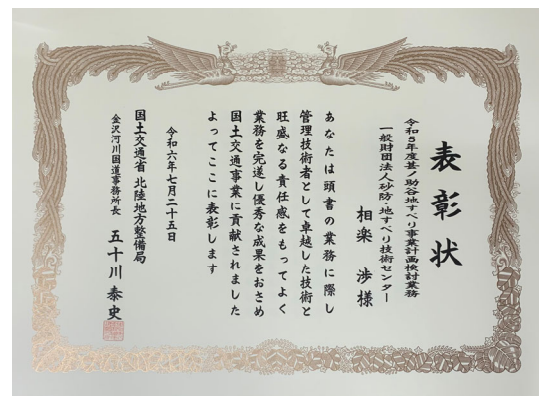 表彰状
令和5年度甚ノ助谷地すべり事業計画検討業務
一般財団法人砂防・地すべり技術センター
相楽 渉 様
あなたは頭書の業務に際し
管理技術者として卓越した技術と
旺盛なる責任感をもってよく
業務を完遂し優秀な成果をおさめ
国土交通事業に貢献されました
よってここに表彰します
令和六年七月二十五日
国土交通省 北陸地方整備局
金沢河川国道事務所長 五十川 泰史